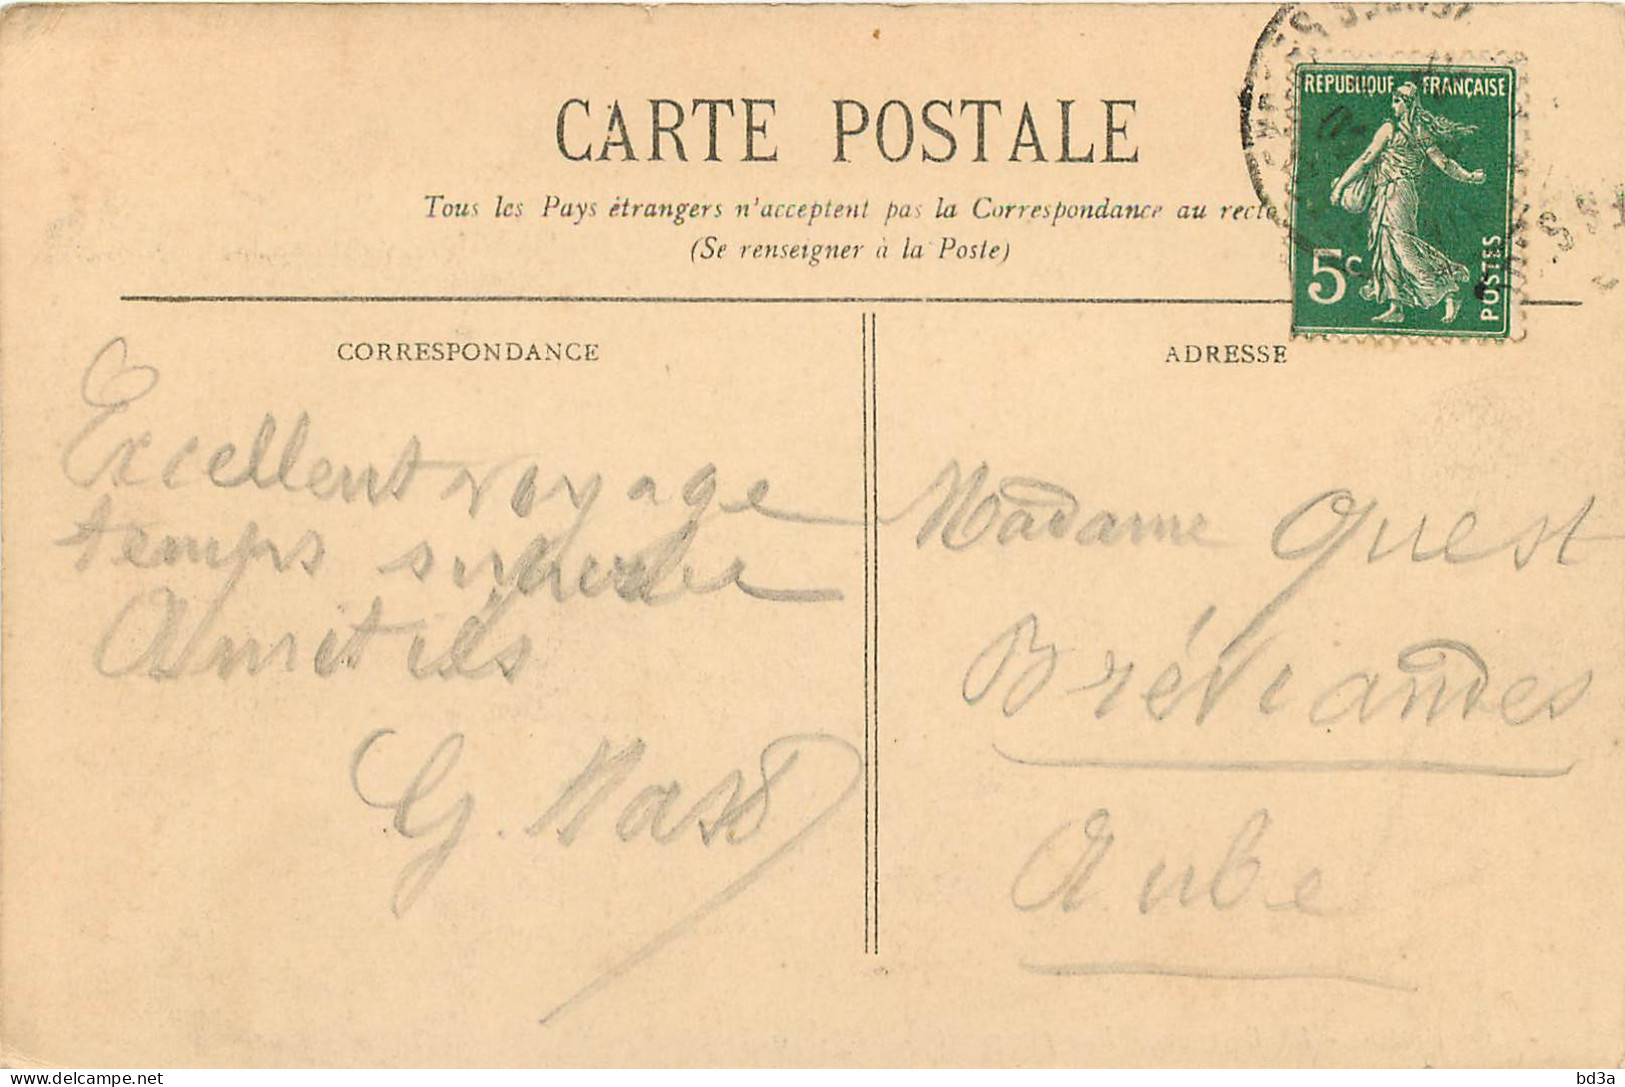 CARTE POSTALE
Tous les Pays étrangers n'acceptent pas la Correspondance au recto
(Se renseigner à la Poste)
RÉPUBLIQUE FRANÇAISE
5c
POSTES
CORRESPONDANCE
ADRESSE
Excellent voyage
temps superbe
Amitiés
G. Nass
Madame Quest
Bréviandes
Aube
bd3a